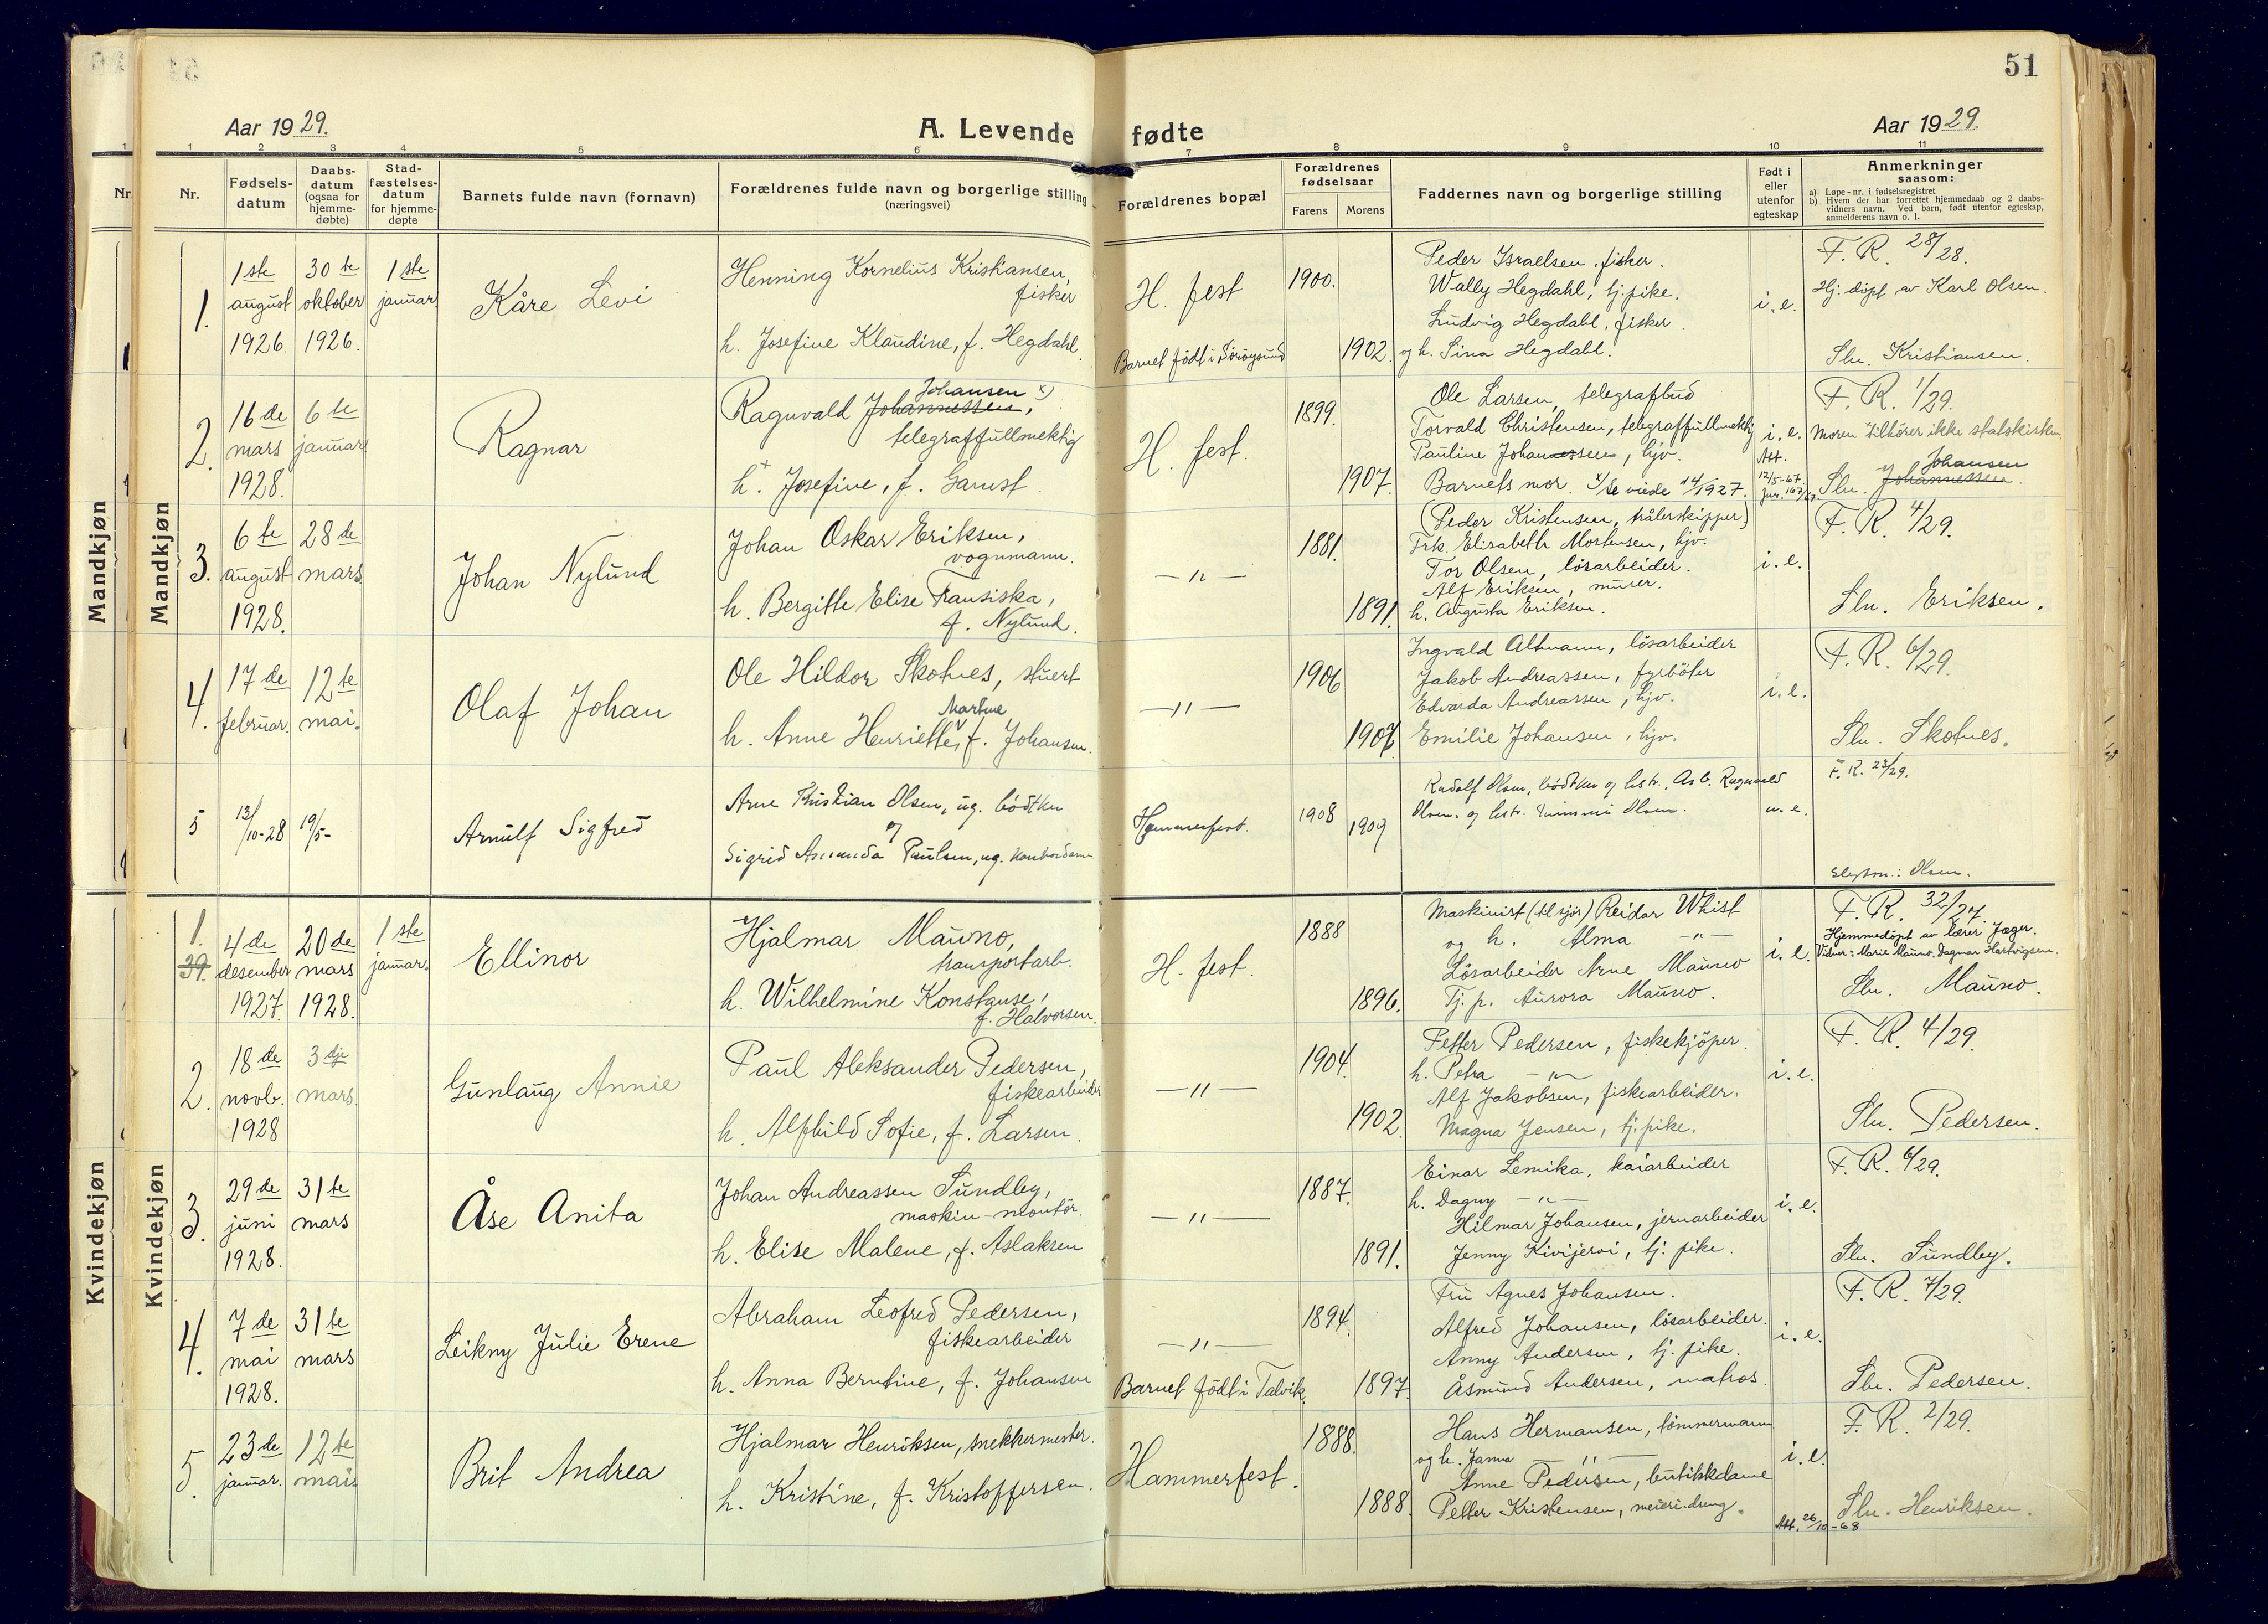 51
Aar 1929.
A. Levende fødte
Aar 1929.
1 2 3 4 5 6 7 8 9 10 11
Nr.
Nr.
Fødsels-
datum
Daabs-
datum
(ogsaa for
hjemme-
døbte)
Stad-
fæstelses-
datum
for hjemme-
døpte
Barnets fulde navn (fornavn)
Forældrenes fulde navn og borgerlige stilling
(næringsvei)
Forældrenes bopæl
Forældrenes
fødselsaar
Farens Morens
Faddernes navn og borgerlige stilling
Født i
eller
utenfor
egteskap
Anmerkninger
saasom:
a) Løpe-nr. i fødselsregistret
b) Hvem der har forrettet hjemmedaab og 2 daabs-
vidners navn. Ved barn, født utenfor egteskap,
anmelderens navn o. l.
Mandkjøn
Mandkjøn
1.
1ste august 1926.
30te oktober 1926.
1ste januar.
Kåre Levi
Henning Kornelius Kristiansen,
fisker
h. Josefine Klaudine, f. Hegdahl.
H. fest
Barnet født i Söröysund
1900.
1902.
Peder Israelsen, fisker.
Wally Hegdahl, tj.pike.
Ludvig Hegdahl, fisker.
og h. Sina Hegdahl.
i. e.
F. R. 28/28.
Hj. döpt av Karl Olsen.
Sln. Kristiansen.
2.
16de mars 1928.
6te januar
Ragnar
Johansen x)
Ragnvald Johannessen,
telegraffullmektig
h.+ Josefine, f. Garnst
H. fest.
1899.
1907.
Ole Larsen, telegrafbud
Torvald Christensen, telegraffullmektig
Pauline Johannessen, hjv.
Barnets mor. x/ Se viede 14/1927.
i. e.
Att.
12/5-67.
Jnr. 167/67.
F. R. 1/29.
Moren tilhører ikke statskirken.
Johansen
Sln. Johannessen.
3.
6te august 1928.
28de mars
Johan Nylund
Johan Oskar Eriksen,
vognmann.
h. Bergitte Elise Fransiska,
f. Nylund.
—"—
1881.
1891.
(Peder Kristensen, trålerskipper)
Frk. Elisabeth Mortensen, hjv.
Tor Olsen, lösarbeider.
Alf Eriksen, murer.
h. Augusta Eriksen.
i. e.
F. R. 4/29.
Sln. Eriksen.
4.
17de februar.
12te mai.
Olaf Johan
Ole Hildor Skotnes, stuert
Martine
h. Anne Henriette, f. Johansen.
—"—
1906
1907
Ingvald Altmann, lösarbeider
Jakob Andreassen, fyrböter
Edvarda Andreassen, hjv.
Emilie Johansen, hjv.
i. e.
F. R. 6/29.
Sln. Skotnes.
5
13/10-28
19/5-
Arnulf Sigfred
Arne Kristian Olsen, ug. bödtker
og
Sigrid Amanda Paulsen, ug.
Hammerfest.
1908
1909
Rudolf Olsen, bödtker og hstr., Asb. Ragnvald
Olsen. og hstr. Olsen.
u. e.
F. R. 23/29.
Slegtsn.: Olsen.
Kvindekjøn
Kvindekjøn
1.
39.
4de desember 1927.
20de mars 1928.
1ste januar.
Ellinor
Hjalmar Mauno,
transportarb.
h. Wilhelmine Konstanse,
f. Halvorsen.
H. fest.
1888
1896.
Maskinist (til sjös) Reidar Whist
og h. Alma —"—
Lösarbeider Arne Mauno
Tj. p. Aurora Mauno.
i. e.
F. R. 32/27.
Hjemmedöpt av lærer Jæger.
Vidner: Marie Mauno, Dagmar Hartvigsen.
Sln. Mauno.
2.
18de novb. 1928
3dje mars.
Gunlaug Annie
Paul Aleksander Pedersen,
fiskearbeider
h. Alfhild Sofie, f. Larsen.
—"—
1904.
1902.
Petter Pedersen, fiskekjöper.
h. Petra —"—
Alf Jakobsen, fiskearbeider.
Magna Jensen, tj.pike.
i. e.
F. R. 4/29.
Sln. Pedersen.
3.
29de juni 1928.
31te mars
Åse Anita
Johan Andreassen Sundley,
maskin-montör.
h. Elise Malene, f. Aslaksen
—"—
1887.
1891.
Einar Lemika, kaiarbeider
h. Dagny —"—
Hilmar Johansen, jernarbeider
Jenny Kivijervi, tj. pike.
i. e.
F. R. 6/29.
Sln. Sundley.
4.
7de mai 1928.
31te mars
Leikny Julie Erene
Abraham Leofred Pedersen,
fiskearbeider
h. Anna Berntine, f. Johansen
—"—
Barnet födt i Talvik.
1894.
1897.
Fru Agnes Johansen.
Alfred Johansen, lösarbeider.
Anny Andersen, tj. pike.
Åsmund Andersen, matros.
i. e.
F. R. 7/29.
Sln. Pedersen.
5.
23de januar.
12te mai
Brit Andrea
Hjalmar Henriksen, snekkermester.
h. Kristine, f. Kristoffersen.
Hammerfest.
1888.
1888.
Hans Hermansen, tömmermann
og h. Janna —"—
Anne Pedersen, butikkdame
Petter Kristensen, meieridreng.
i. e.
Att. 26/10-68
F. R. 2/29.
Sln. Henriksen.